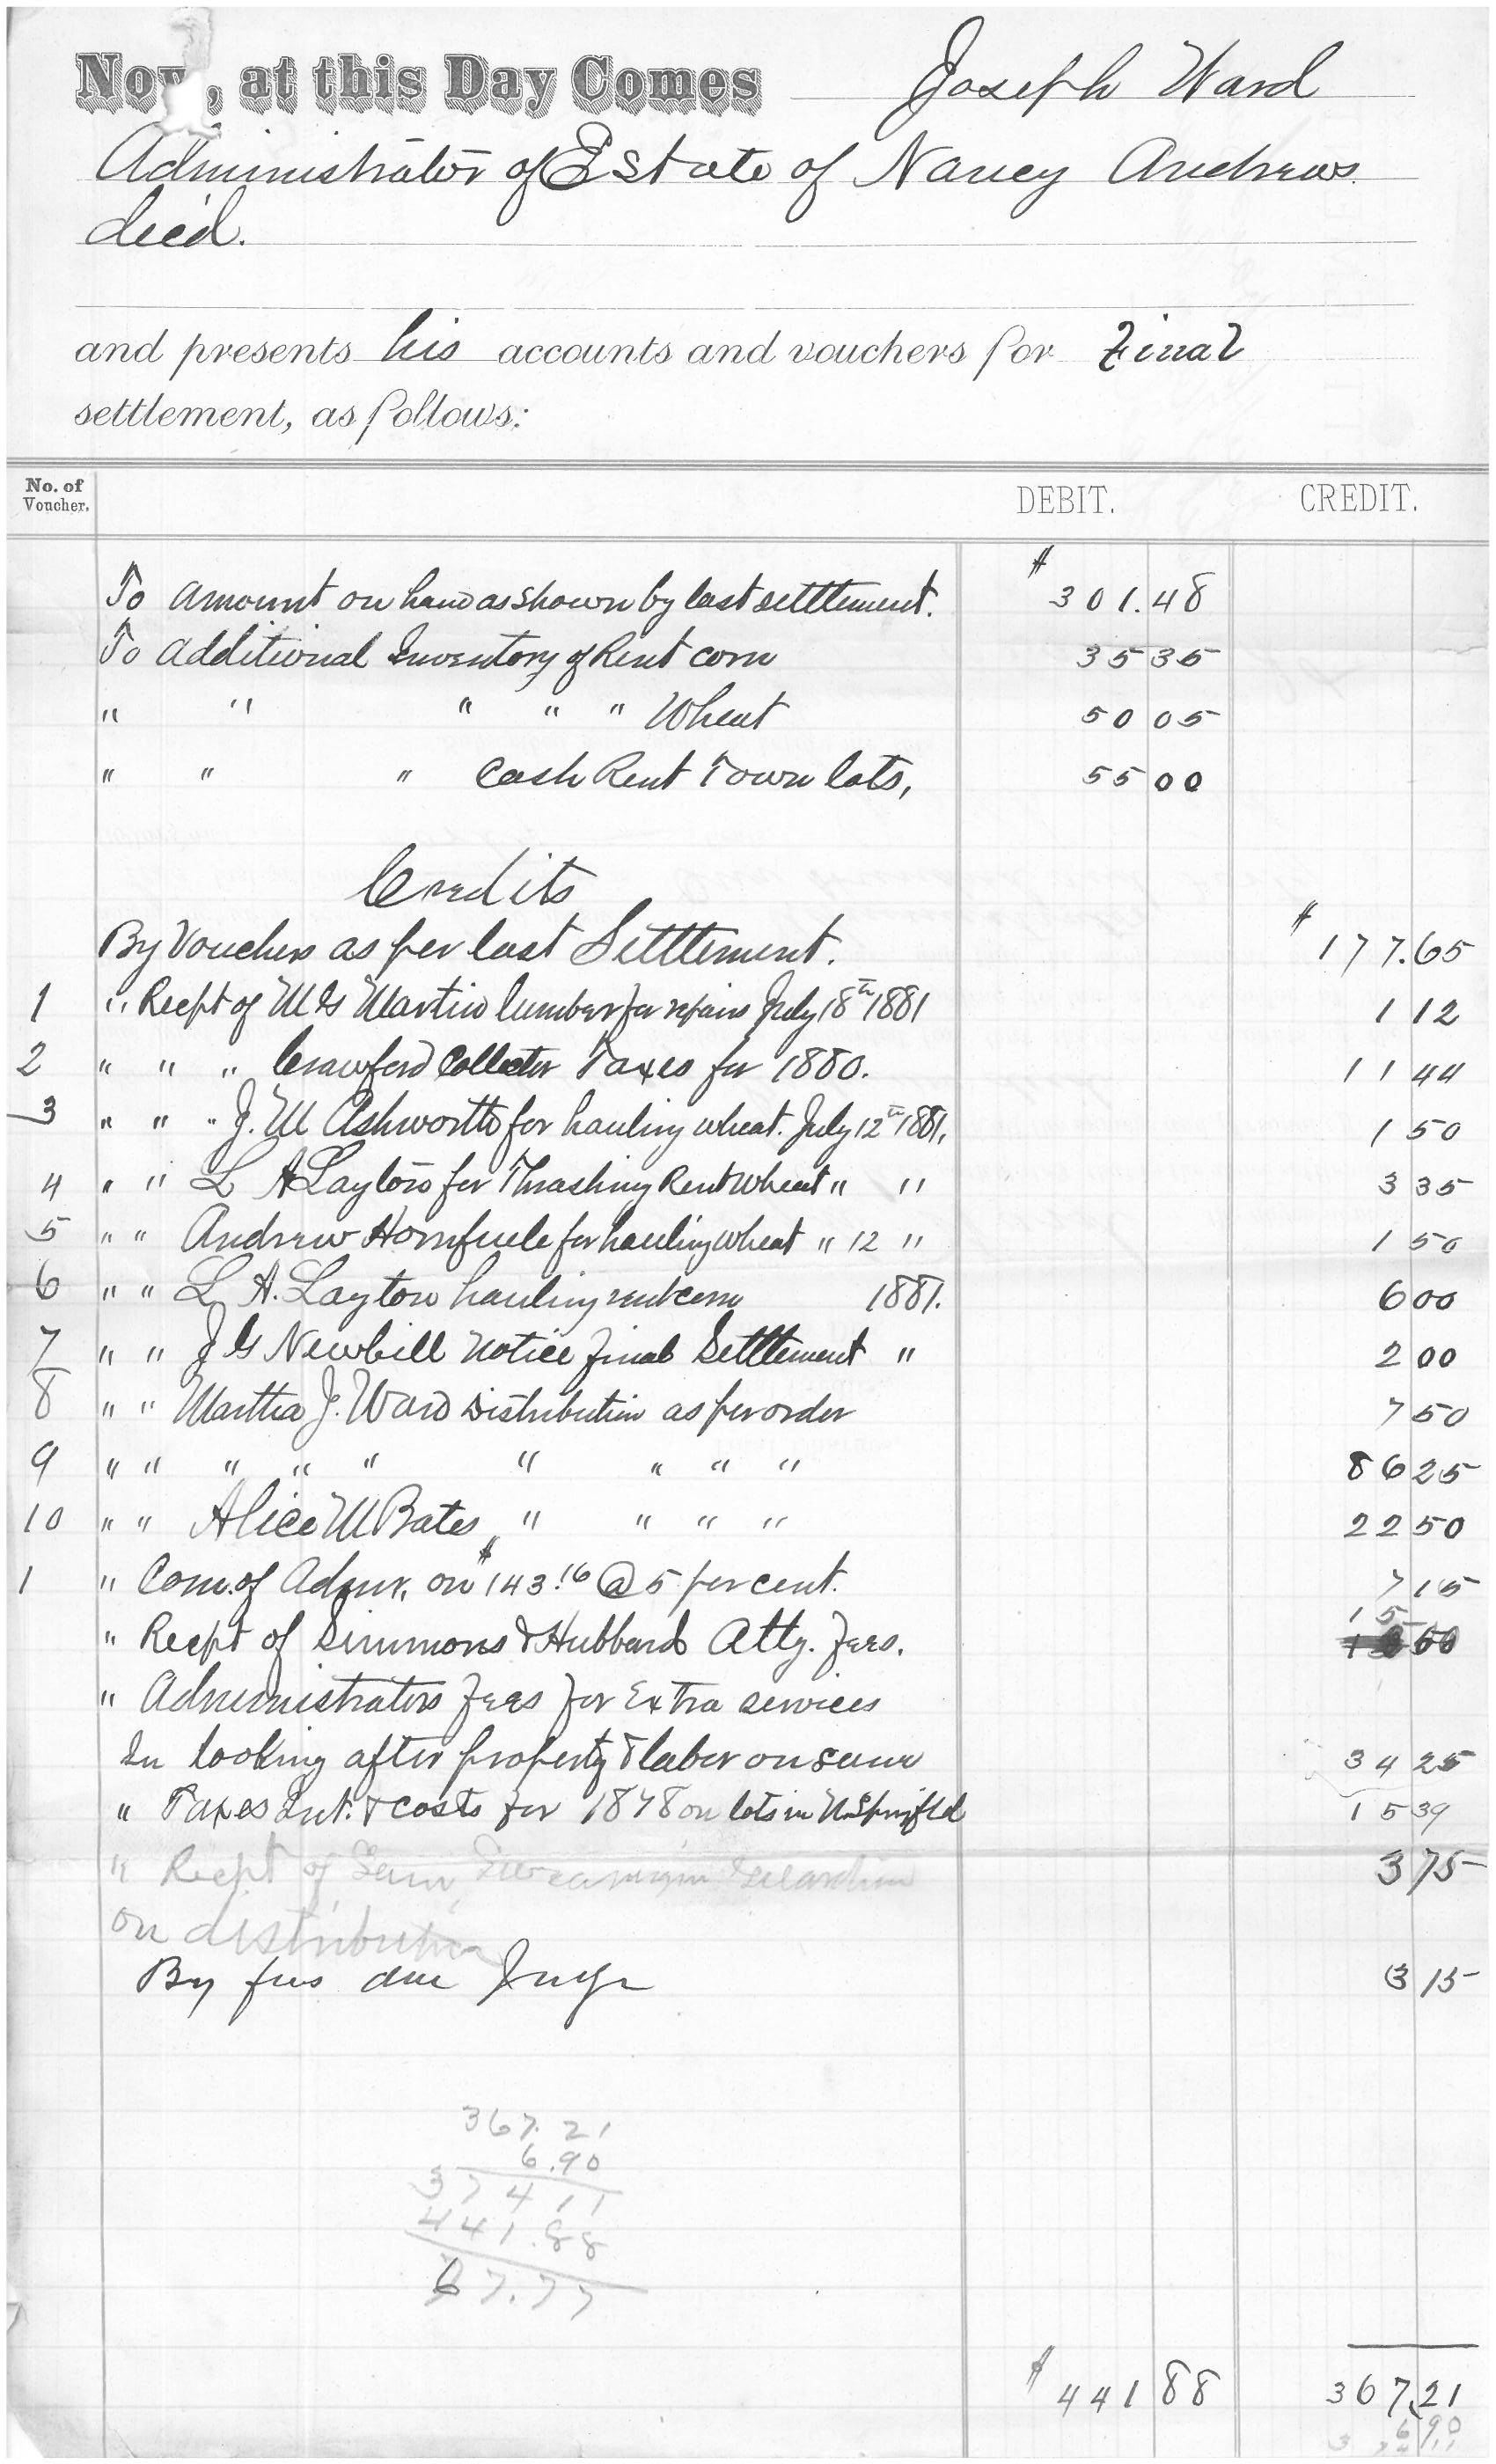 Now, at this Day Comes Joseph Ward
Administrator of Estate of Nancy Andrews
decd.
and presents his accounts and vouchers for Final
settlement, as follows:
No. of Voucher. DEBIT. CREDIT.
To amount on hand as shown by last settlement. $ 301.48
To additional Inventory of Rent corn 35 35
" " " " " Wheat 50 05
" " " Cash Rent Town lots, 55 00
Credits
By Vouchers as per last Settlement. $ 177.65
1 " Recpt of M G Martin lumber for repairs July 18th 1881 1 12
2 " " " Crawford Collector Taxes for 1880. 11 44
3 " " " J. M Ashworth for hauling wheat. July 12th 1881. 1 50
4 " " L A Layton for Thrashing Rent Wheat " " 3 35
5 " " Andrew Hornfuele for hauling Wheat " 12 " 1 50
6 " " L A. Layton hauling rent corn 1881. 6 00
7 " " J G Newbill notice final Settlement " 2 00
8 " " Martha J. Ward Distribution as per order 7 50
9 " " " " " " " " " 86 25
10 " " Alice M Bates " " " " 22 50
1 " Com. of Admr. on $143.16 @ 5 per cent. 7 15
" Recpt of Simmons & Hubbard Atty. fees. 15 00
" Administrators fees for Extra services
In looking after property & labor on same 34 25
" Taxes Int. & costs for 1878 on lots in N. Springfield 15 39
" Recpt of Guardian 3 75
on distribution
By fees due Judge 3 15
367.21
6.90
374 11
441.88
67.77
$ 441 88 367.21
6 90